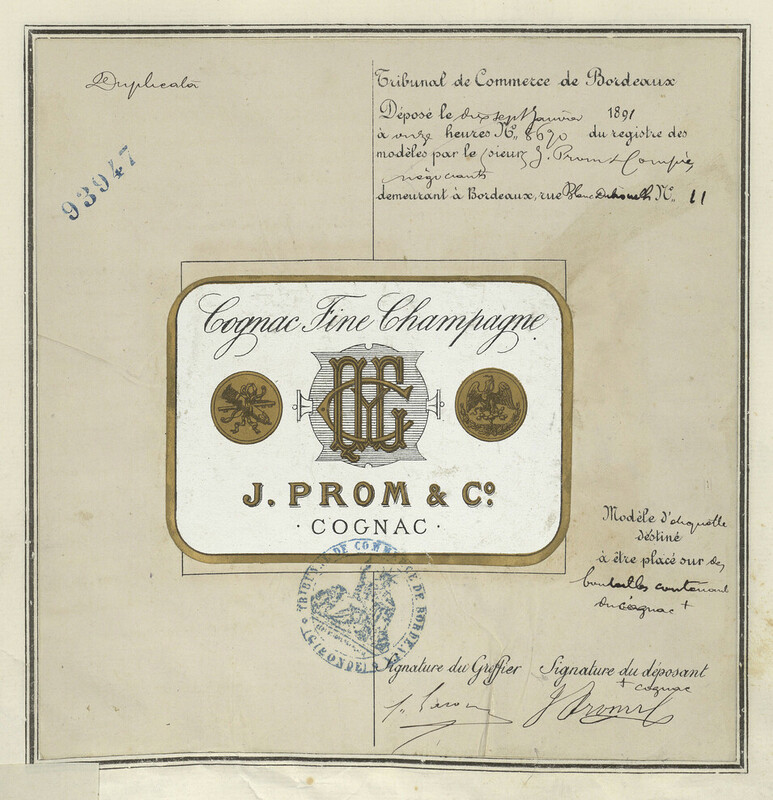 Duplicata
93947
Tribunal de Commerce de Bordeaux
Déposé le dix sept Janvier 1891
à onze heures No. 8690 du registre des
modèles par le sieur J. Prom & Compie
négociants
demeurant à Bordeaux, rue Blanc Dutrouilh No. 11
Cognac Fine Champagne
J. PROM & Co
· COGNAC ·
Modèle d'étiquette
destiné
à être placé sur des
bouteilles contenant
du cognac +
TRIBUNAL DE COMMERCE DE BORDEAUX
(GIRONDE)
Signature du Greffier
Signature du déposant
+ cognac